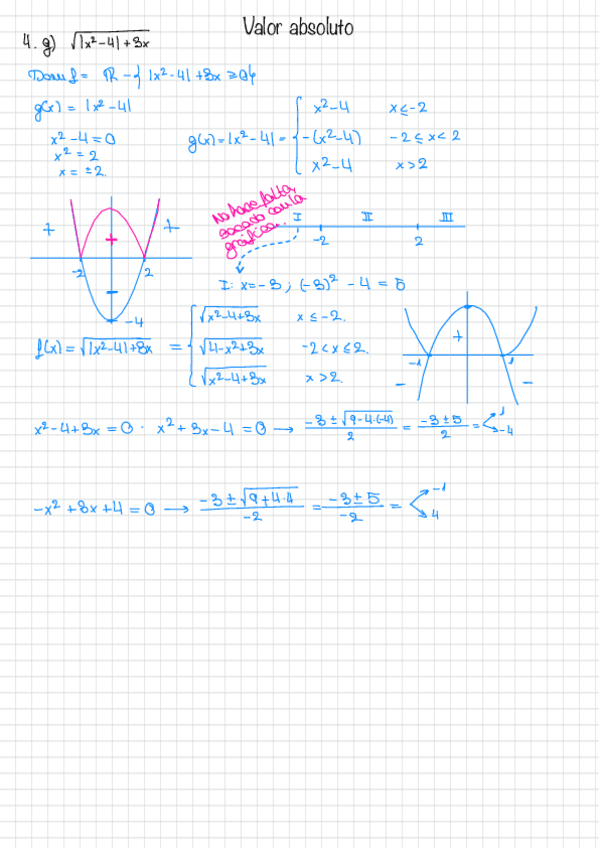 Valor absoluto
4. g) √|x²-4|+3x
Dom f = ℝ - { |x²-4| + 3x ≥ 0 }
g(x) = |x²-4|
x²-4 = 0
x² = 2
x = ±2.
g(x) = |x²-4| = { x²-4 x ≤ -2
-(x²-4) -2 ≤ x < 2
x²-4 x > 2
No hace falta,
sacado con la
gráfica...
I II III
-2 2
I: x = -3 ; (-3)² - 4 = 5
+ + +
-2 2
-
-4
f(x) = √|x²-4|+3x = { √x²-4+3x x ≤ -2.
√4-x²+3x -2 < x ≤ 2.
√x²-4+3x x > 2.
+
-1 1
- -
x²-4+3x = 0 · x²+3x-4 = 0 → -3±√9-4·(-4) / 2 = -3±5 / 2 = 1
-4
-x²+3x+4 = 0 → -3±√9+4·4 / -2 = -3±5 / -2 = -1
4